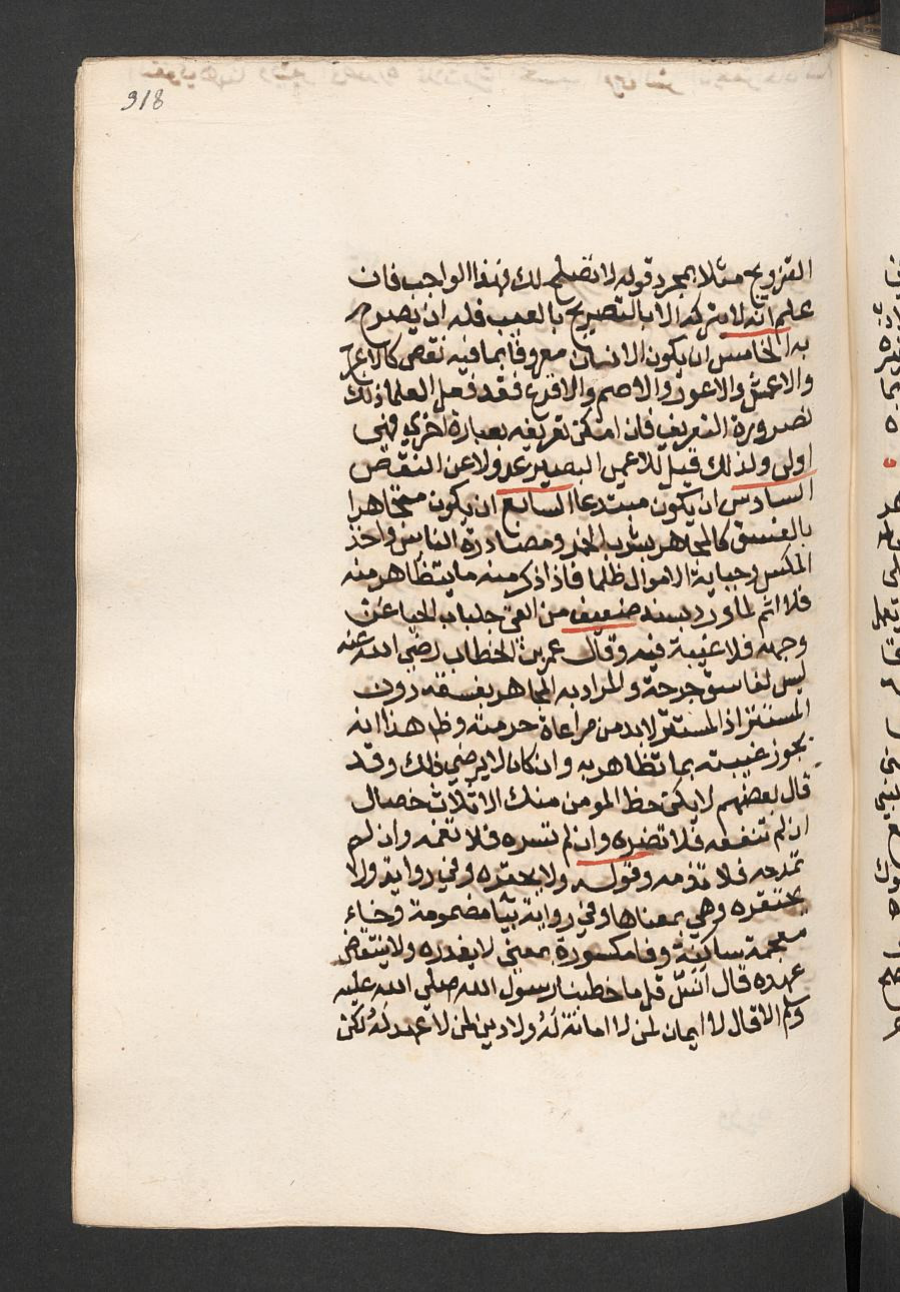 318
التزويج مثلا بمجرد قوله لا تصلح لك فهذا الواجب فان
علم انه لا يتركه الا بالتصريح بالعيب فله ان يصرح
به الخامس ان يكون الانسان معروفا بما فيه نقص كالاعرج
والاعمش والاعور والاصم والاقرع فقد فعل العلما ذلك
لضرورة التعريف فان امكن تعريفه بعبارة اخري فهي
اولى ولذلك قيل للاعمي البصير عدولا عن النقص
السادس ان يكون مبتدعا السابع ان يكون متجاهرا
بالفسق كالمجاهر بشرب الخمر ومصادرة الناس واخذ
المكس وجباية الاموال ظلما فاذا ذكر منه ما يتظاهر منه
فلا اثم لما ورد بسند ضعيف من القى جلباب الحيا عن
وجهه فلا غيبة فيه وقال عمر بن الخطاب رضي الله عنه
ليس لفاسق حرمة والمراد به المجاهر بفسقه دون
المستتر اذ المستتر لا بد من مراعاة حرمته وظ هذا انه
يجوز غيبته بما تظاهر به وان كان لا يرضي ذلك وقد
قال بعضهم لا يكن حظ المومن منك الا ثلاث خصال
ان لم تنفعه فلا تضره وان لم تسره فلا تغمه وان لم
تمدحه فلا تذمه وقوله ولا يحقره وفي رواية ولا
يحتقره وهي بمعناها وفي رواية بيا مضمومة وخاء
معجمة ساكنة وفا مكسورة بمعني لا يغدره ولا ينقض
عهده قال انس قل ما خطبنا رسول الله صلى الله عليه
وسلم الا قال لا ايمان لمن لا امانة له ولا دين لمن لا عهد له لكن